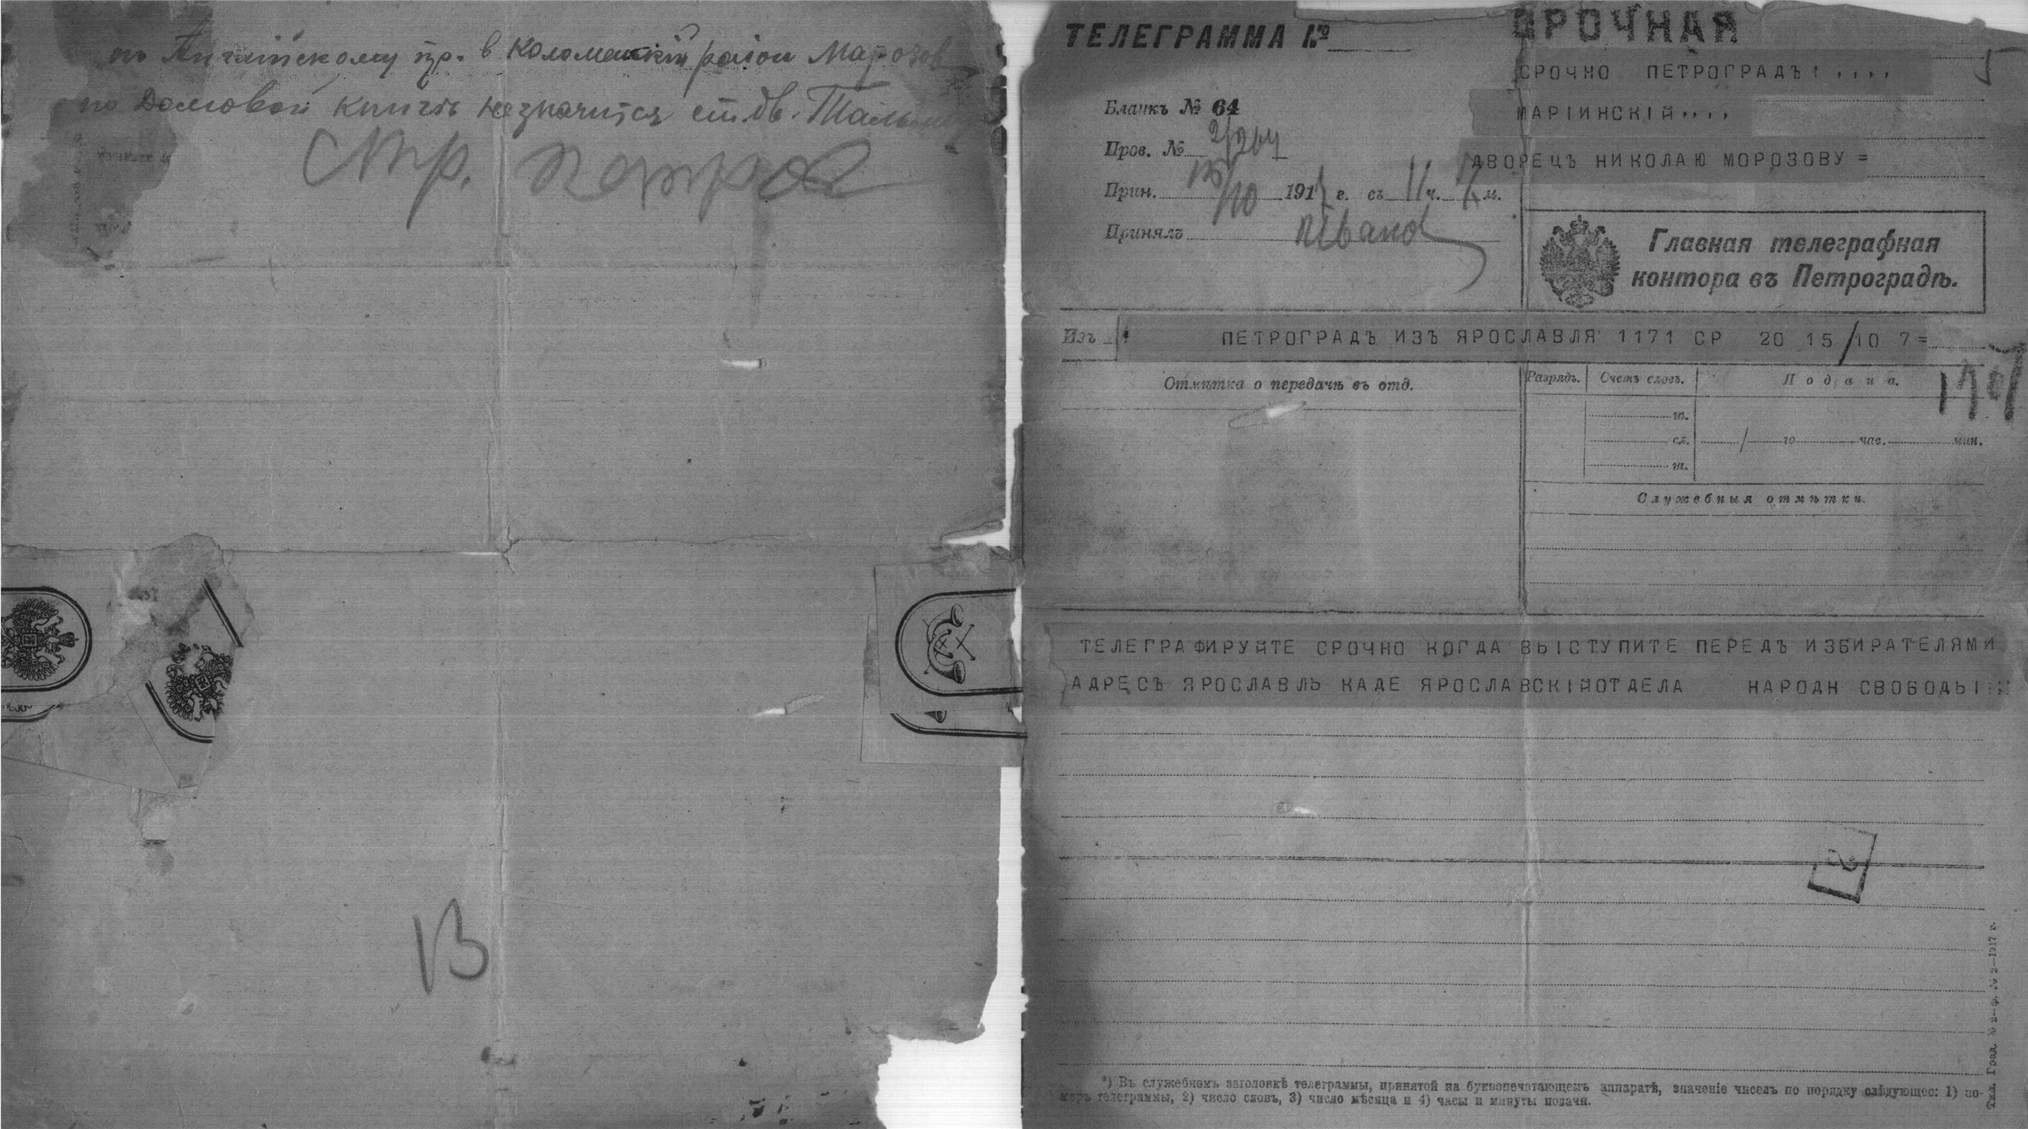 по Английскому пр. в Коломенский район Марозов
по Домовой книги не значится ст. дв.
Стр.
13
ТЕЛЕГРАММА №
СРОЧНАЯ
СРОЧНО ПЕТРОГРАДЪ ! , , , ,
МАРІИНСКІЙ , , , ,
ДВОРЕЦЪ НИКОЛАЮ МОРОЗОВУ =
Бланкъ № 64
Пров. № 2/264
Прин. 15/10 1917 г. съ 11 ч. м.
Принялъ
Главная телеграфная
контора въ Петроградѣ.
Изъ ПЕТРОГРАДЪ ИЗЪ ЯРОСЛАВЛЯ 1171 СР 20 15/10 7=
Отмѣтка о передачѣ въ отд.
Разрядъ. Счетъ словъ. Подача.
го час. мин.
Служебныя отмѣтки.
ТЕЛЕГРАФИРУЙТЕ СРОЧНО КОГДА ВЫСТУПИТЕ ПЕРЕДЪ ИЗБИРАТЕЛЯМИ
АДРЕСЪ ЯРОСЛАВЛЬ КАДЕ ЯРОСЛАВСКІЙОТДЕЛА НАРОДН СВОБОДЫ
2
*) Въ служебномъ заголовкѣ телеграммы, принятой на буквопечатающемъ аппаратѣ, значеніе чиселъ по порядку слѣдующее: 1) но-
меръ телеграммы, 2) число словъ, 3) число мѣсяца и 4) часы и минуты подачи.